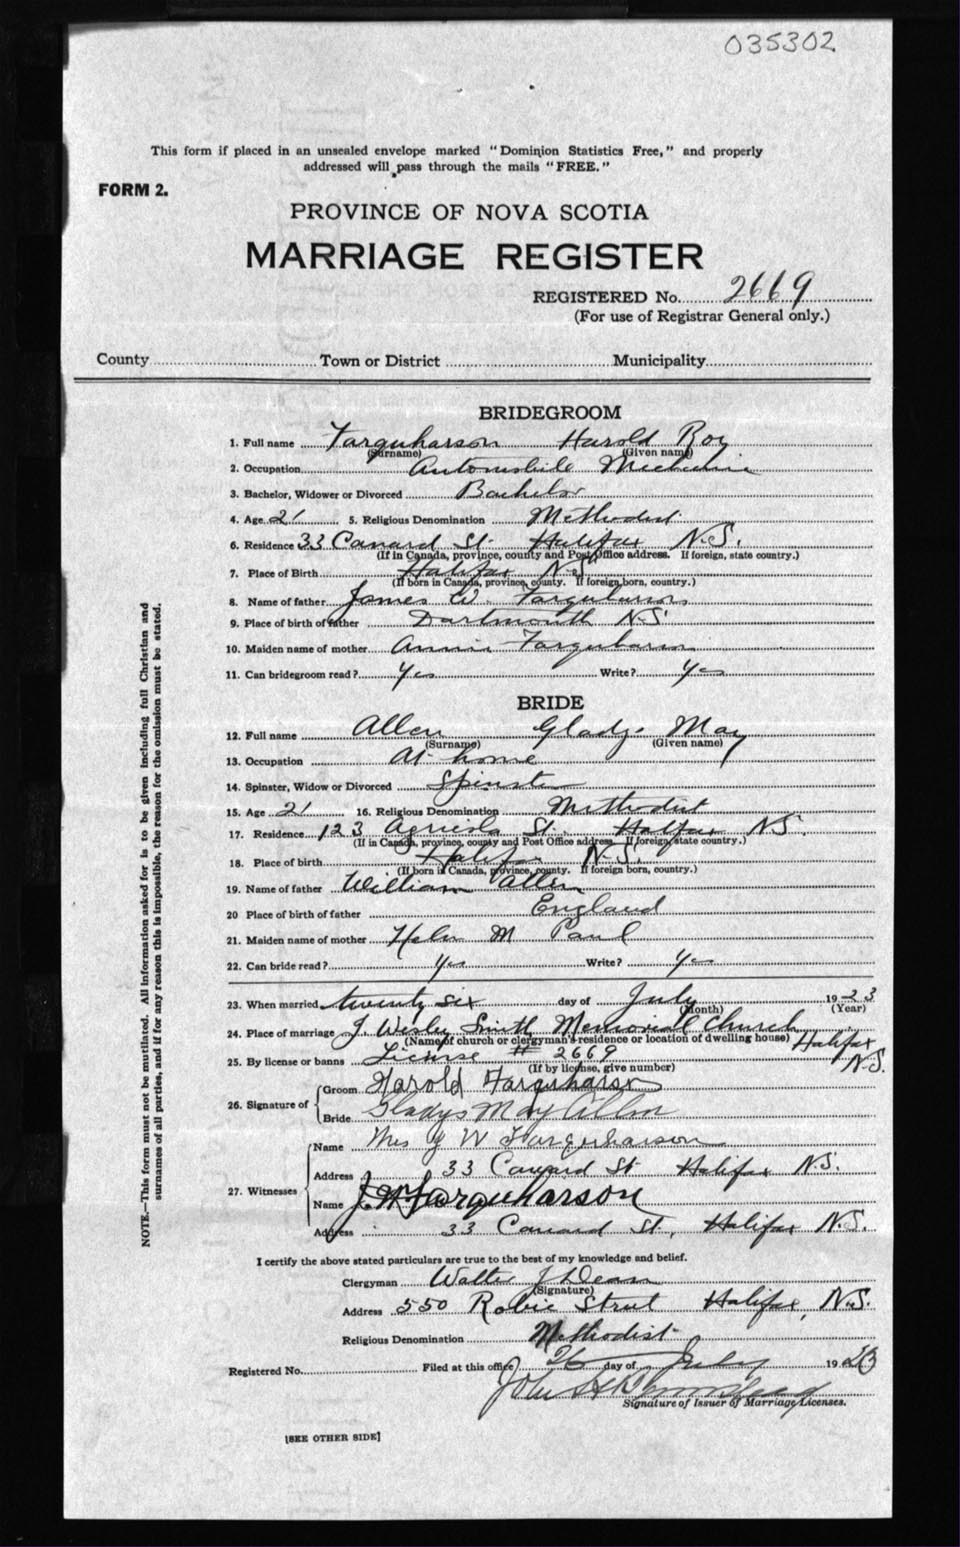 035302
This form if placed in an unsealed envelope marked "Dominion Statistics Free," and properly
addressed will pass through the mails "FREE."
FORM 2.
PROVINCE OF NOVA SCOTIA
MARRIAGE REGISTER
REGISTERED No. 2669
(For use of Registrar General only.)
County Town or District Municipality
BRIDEGROOM
1. Full name Farquharson Harold Roy
(Surname) (Given name)
2. Occupation Automobile Mechanic
3. Bachelor, Widower or Divorced Bachelor
4. Age 21 5. Religious Denomination Methodist
6. Residence 33 Canard St. Halifax N.S.
(If in Canada, province, county and Post Office address. If foreign, state country.)
7. Place of Birth Halifax N.S.
(If born in Canada, province, county. If foreign born, country.)
8. Name of father James W. Farquharson
9. Place of birth of father Dartmouth N.S.
10. Maiden name of mother Annie Farquharson
11. Can bridegroom read? Yes Write? Yes
BRIDE
12. Full name Allen Gladys May
(Surname) (Given name)
13. Occupation At home
14. Spinster, Widow or Divorced Spinster
15. Age 21 16. Religious Denomination Methodist
17. Residence 123 Agricola St. Halifax N.S.
(If in Canada, province, county and Post Office address. If foreign, state country.)
18. Place of birth Halifax N.S.
(If born in Canada, province, county. If foreign born, country.)
19. Name of father William Allen
20 Place of birth of father England
21. Maiden name of mother Helen M Paul
22. Can bride read? Yes Write? Yes
23. When married twenty six day of July 1923
(Month) (Year)
24. Place of marriage J. Wesley Smith Memorial Church
(Name of church or clergyman's residence or location of dwelling house) Halifax
25. By license or banns License # 2669 N.S.
(If by license, give number)
26. Signature of Groom Harold Farquharson
Bride Gladys May Allen
27. Witnesses Name Mrs J W Farquharson
Address 33 Canard St Halifax N.S.
Name J. W. Farquharson
Address 33 Canard St, Halifax N.S.
I certify the above stated particulars are true to the best of my knowledge and belief.
Clergyman Walter J Dean
(Signature)
Address 550 Robie Street Halifax, N.S.
Religious Denomination Methodist
Registered No. Filed at this office 26 day of July 1923
John
Signature of Issuer of Marriage Licenses.
[SEE OTHER SIDE]
NOTE.—This form must not be mutilated. All information asked for is to be given including full Christian and
surnames of all parties, and if for any reason this is impossible, the reason for the omission must be stated.